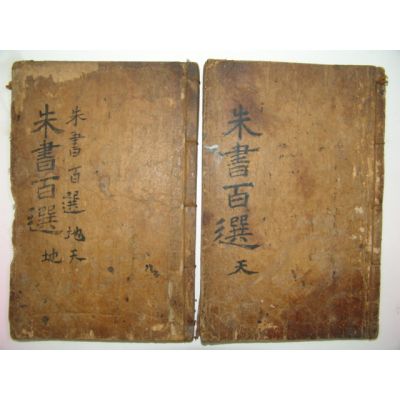 朱書百選 天
朱書百選 地天
朱書百選 地